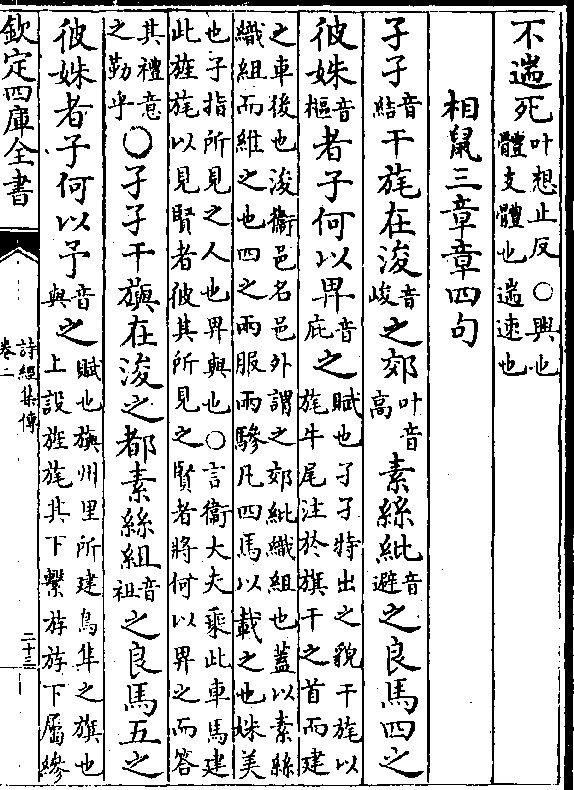 不遄死叶想止反○興也體支體也遄速也
相鼠三章章四句
孑孑音結干旄在浚音峻之郊叶音高素絲紕音避之良馬四之
彼姝音樞者子何以畀音庇之賦也孑孑特出之貌干旄以旄牛尾注於旗干之首而建
之車後也浚衞邑名邑外謂之郊紕織組也蓋以素絲織組而維之也四之兩服兩驂凡四馬以載之也姝美
也子指所見之人也畀與也○言衞大夫乘此車馬建此旌旄以見賢者彼其所見之賢者將何以畀之而答
其禮意之勤乎○孑孑干旟在浚之都素絲組音祖之良馬五之
彼姝者子何以予音與之賦也旟州里所建鳥隼之旗也上設旌旄其下繫斿斿下屬縿
欽定四庫全書
詩經集傳
卷二
二十三